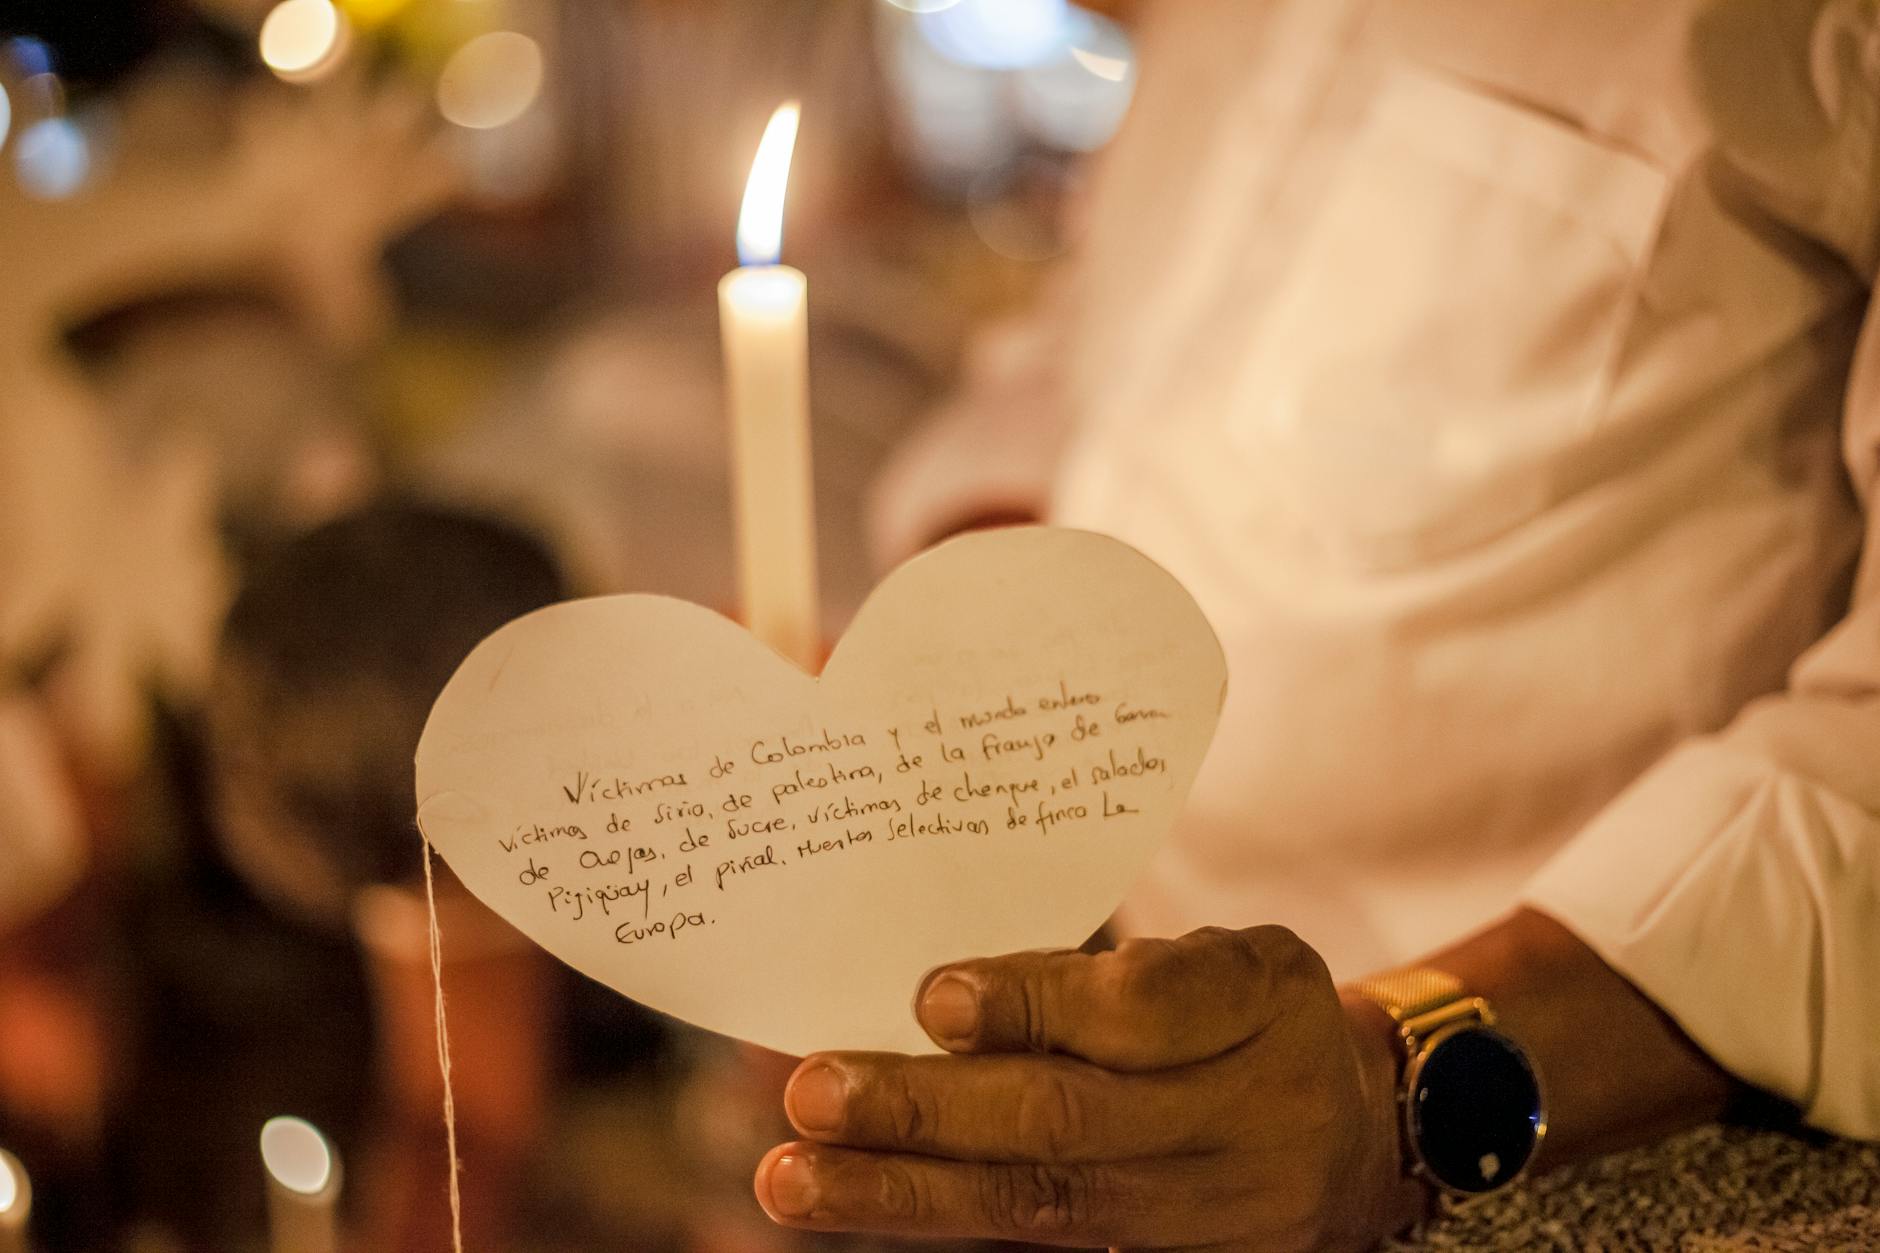 Víctimas de Colombia y el mundo entero
víctimas de siria, de palestina, de la franja de Gaza
de Ovejas, de Sucre, víctimas de chengue, el salado,
Pijiguay, el piñal, Muertos selectivas de finca La
Europa.